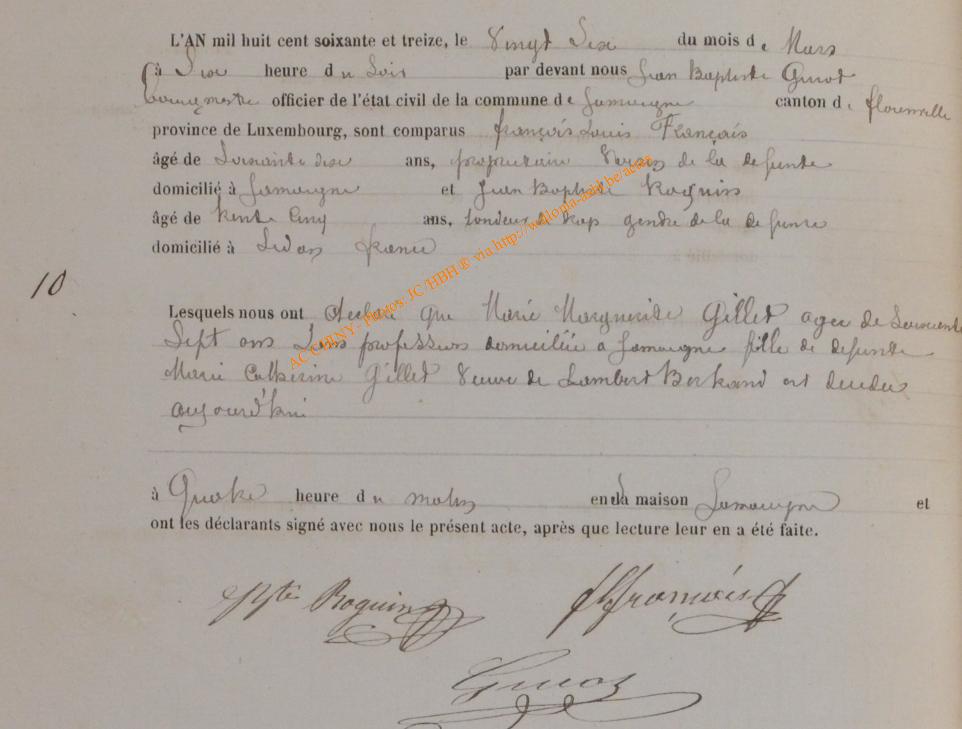 L'AN mil huit cent soixante et treize, le Vingt Six du mois de Mars
à Six heure du Soir par devant nous Jean Baptiste Guiot
bourgmestre officier de l'état civil de la commune de Jamoigne canton de florenville
province de Luxembourg, sont comparus françois Louis François
âgé de Soixante dix ans, proprietaire Voisin de la defunte
domicilié à Jamoigne et Jean Baptiste Roguin
âgé de trente Cinq ans, tondeur de drap gendre de la defunte
domicilié à Sedan france
10
Lesquels nous ont declaré que Marie Marguerite Gillet agee de Soixante
Sept ans Sans profession domiciliée a Jamoigne fille de defunte
Marie Catherine Gillet Veuve de Lambert Bertrand est decedee
aujourd'hui
à Quatre heure du matin en la maison Jamoigne et
ont les déclarants signé avec nous le présent acte, après que lecture leur en a été faite.
Bte Roguin
François
Guiot
AC CHINY - Photos: JC /HBH ® via http://wallonia-asbl.be/actes